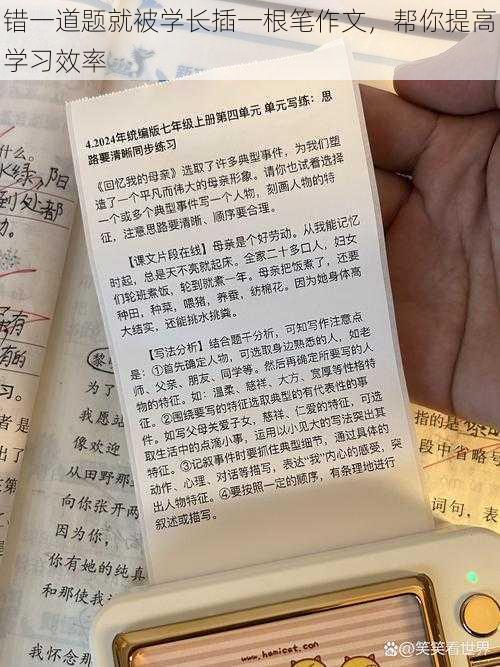 错一道题就被学长插一根笔作文，帮你提高
学习效率
4.2024年统编版七年级上册第四单元 单元写练：思
路要清晰同步练习
《回忆我的母亲》选取了许多典型事件，为我们塑
造了一个平凡而伟大的母亲形象。请你也试着选择
一个或多个典型事件写一个人物，刻画人物的特
征，注意思路要清晰、顺序要合理。
【课文片段在线】母亲是个好劳动。从我能记忆
时起，总是天不亮就起床。全家二十多口人，妇女
们轮班煮饭，轮到就煮一年。母亲把饭煮了，还要
种田，种菜，喂猪，养蚕，纺棉花。因为她身体高
大结实，还能挑水挑粪。
【写法分析】结合题干分析，可知写作注意点
是：①首先确定人物，可选取身边熟悉的人，如老
师、父亲、朋友、同学等。然后再确定所要写的人
物的特征。如：温柔、慈祥、大方、宽厚等性格特
征。②围绕要写的特征选取典型的有代表性的事
件。如写父母关爱子女，慈祥、仁爱的特征，可选
取生活中的点滴小事，运用以小见大的写法突出其
特征。③记叙事件时要抓住典型细节，通过具体的
动作、心理、对话等描写，表达“我”内心的感受，突
出人物特征。④要按照一定的顺序，有条理地进行
叙述或描写。
什么。
到处都
有的
习。
第
为了
我愿
像欢迎
从田野那
向你张开两
因为你，
你有的纯真
和那使我
我怀念那
指的是
段中省略号
词句，表
www.hamicat.com
@笑笑看世界